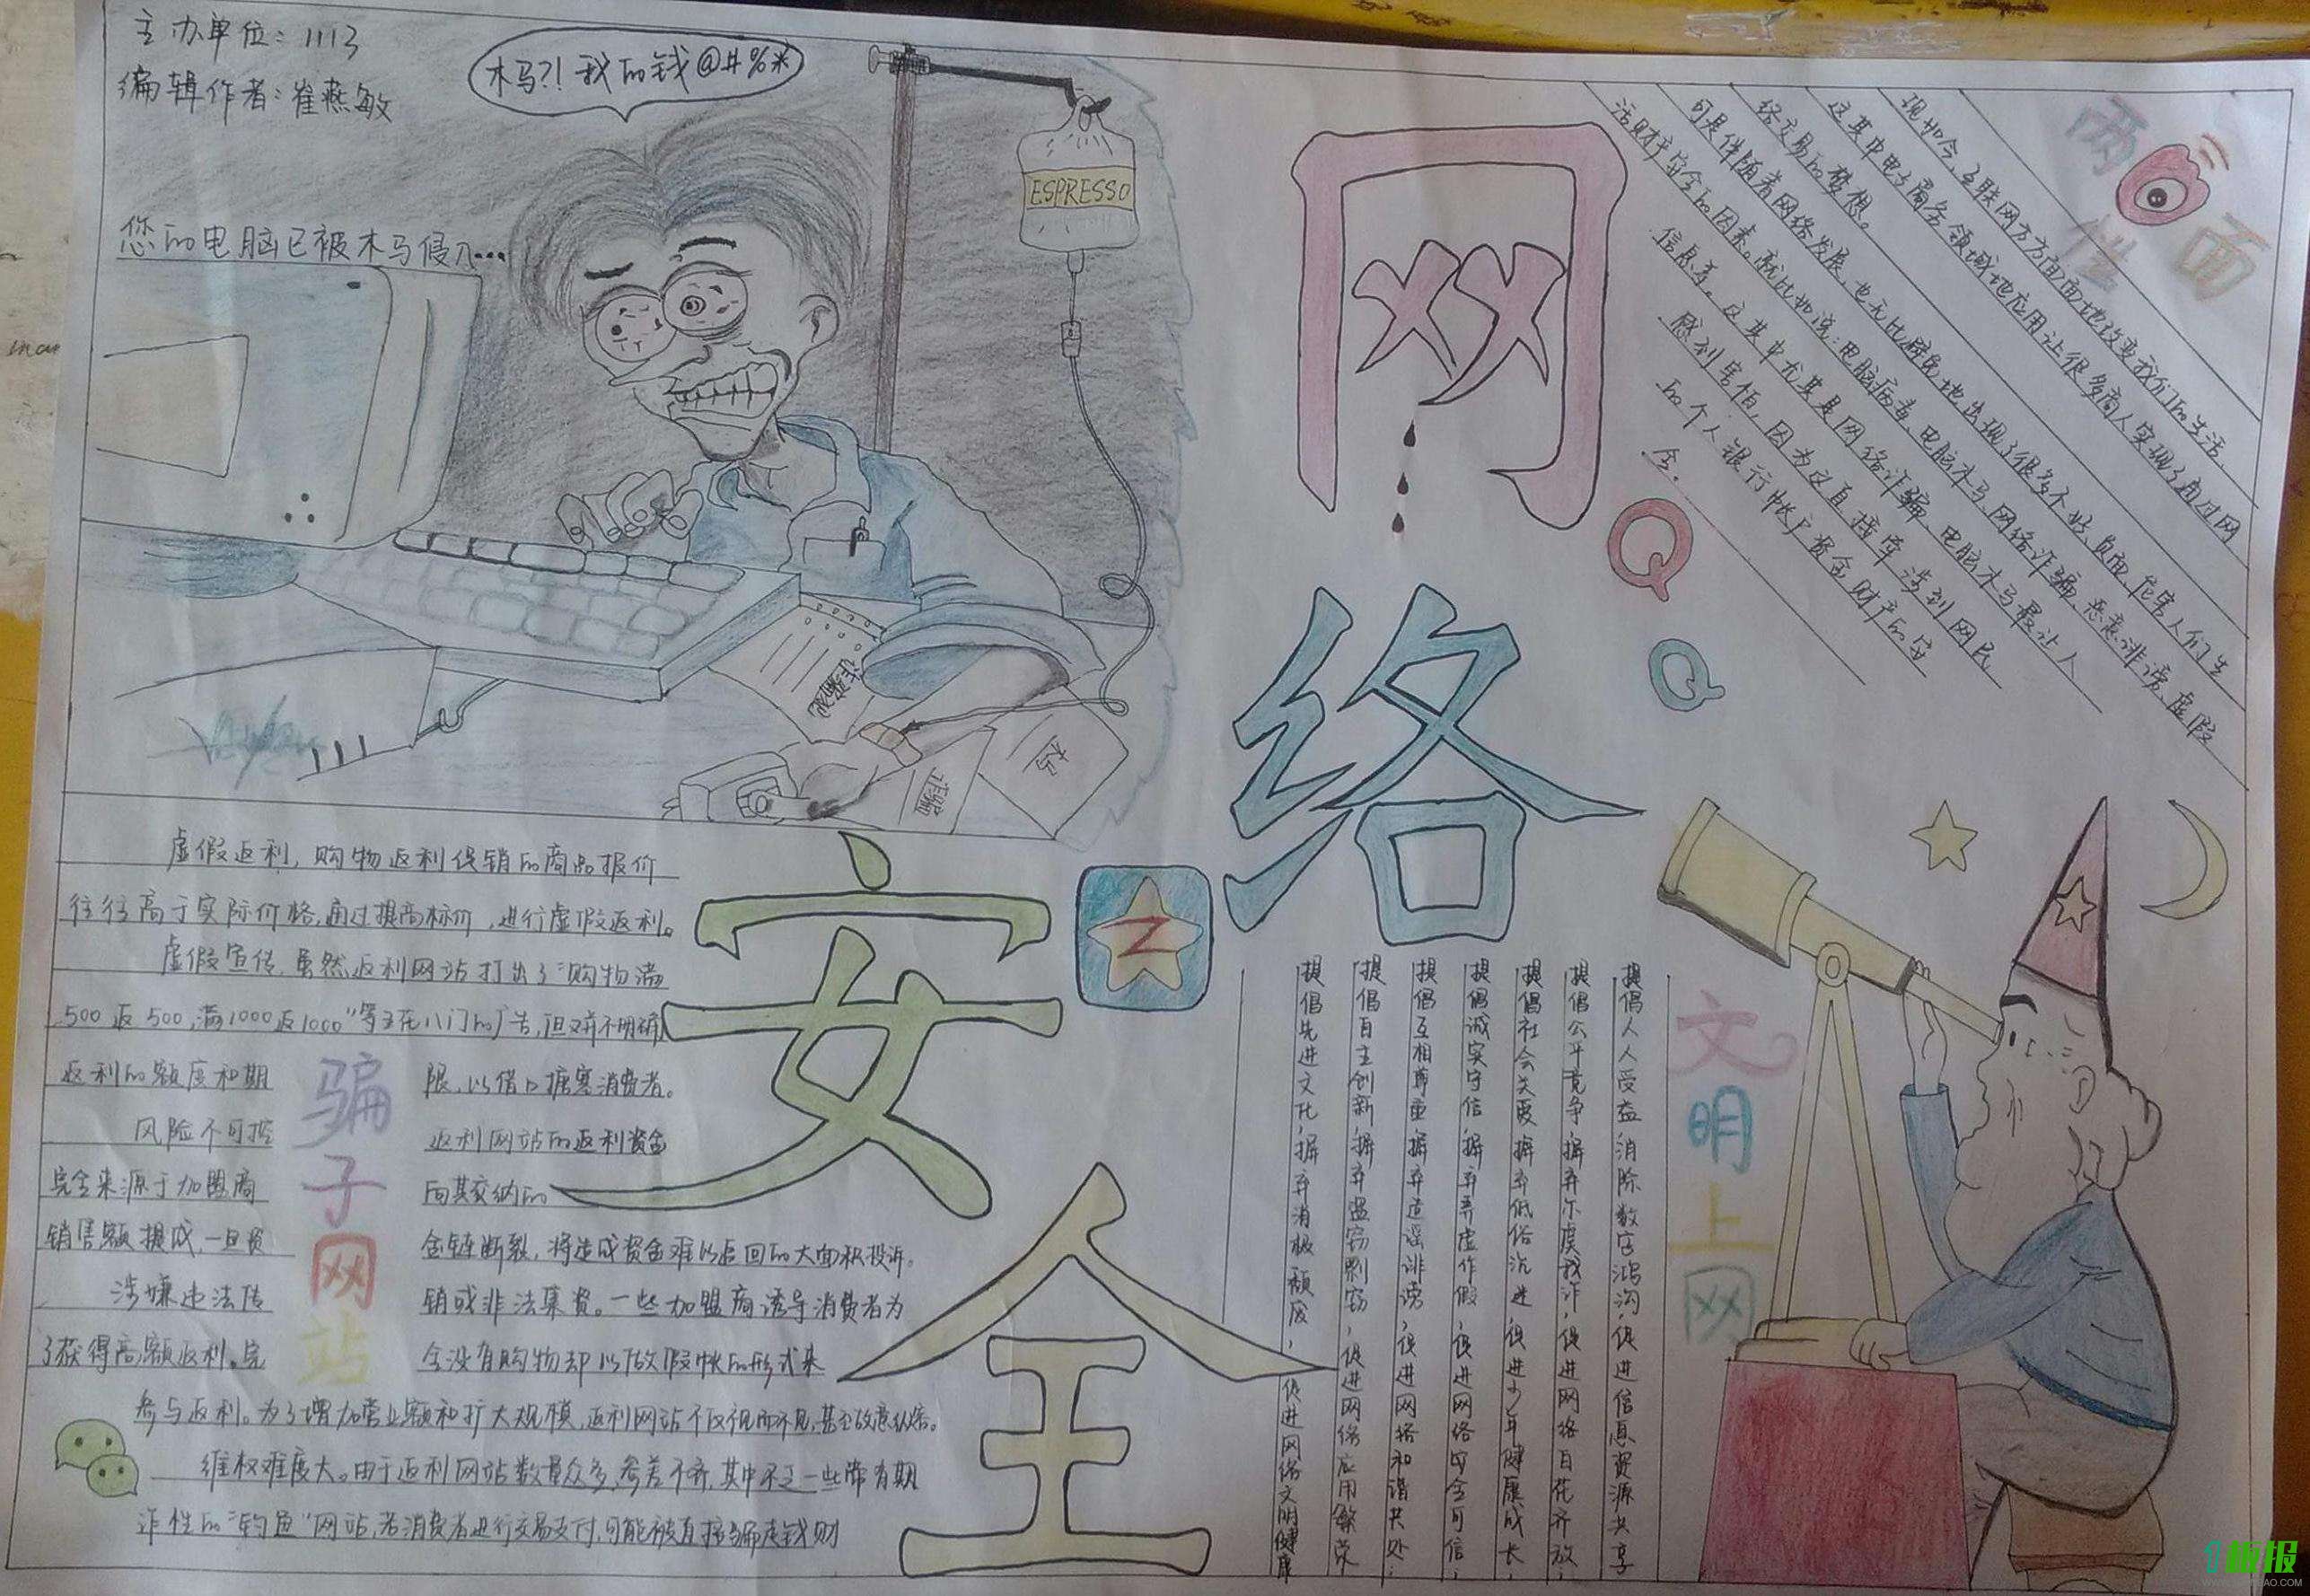 主办单位：1113
编辑作者：崔燕敏
木马?! 我的钱@#%*
您的电脑已被木马侵入…
ESPRESSO
诈骗
诈骗
网
络
安
全
Q
Q
Z
两
面
性
现如今，互联网方方面面地改变我们的生活，
这其中电子商务领域地应用让很多商人实现了通过网
络交易的梦想。
可是伴随着网络发展，也无比避免地出现了很多不好、负面、危害人们生
活财产安全的因素。就比如说：电脑病毒、电脑木马、网络诈骗、恶意诽谤、虚假
信息等。这其中尤其是网络诈骗、电脑木马最让人
感到害怕，因为这直接牵涉到网民
的个人银行帐户资金财产的安
全。
虚假返利，购物返利促销的商品报价
往往高于实际价格，通过提高标价，进行虚假返利。
虚假宣传，虽然返利网站打出了“购物满
500返500，满1000返1000”等五花八门的广告，但对并不明确
返利的额度和期
限，以借口搪塞消费者。
风险不可控
返利网站的返利资金
完全来源于加盟商
向其交纳的
销售额提成，一旦资
金链断裂，将造成资金难以返回的大面积投诉。
涉嫌违法传
销或非法集资。一些加盟商诱导消费者为
了获得高额返利。完
全没有购物却以做假帐的形式来
参与返利。为了增加营业额和扩大规模，返利网站不仅视而不见，甚至故意纵容。
维权难度大。由于返利网站数量众多，参差不齐，其中不乏一些带有期
诈性的“钓鱼”网站，若消费者进行交易支付，可能被直接骗走钱财
骗
子
网
站
文
明
上
网
提倡人人受益，消除数字鸿沟，促进信息资源共享
提倡公平竞争，摒弃尔虞我诈，促进网络百花齐放，
提倡社会关爱，摒弃低俗沉迷，促进少年健康成长，
提倡诚实守信，摒弃弄虚作假，促进网络安全可信，
提倡互相尊重，摒弃造谣诽谤，促进网络和谐共处；
提倡自主创新，摒弃盗窃剽窃，促进网络应用繁荣
提倡先进文化，摒弃消极颓废，促进网络文明健康
1板报